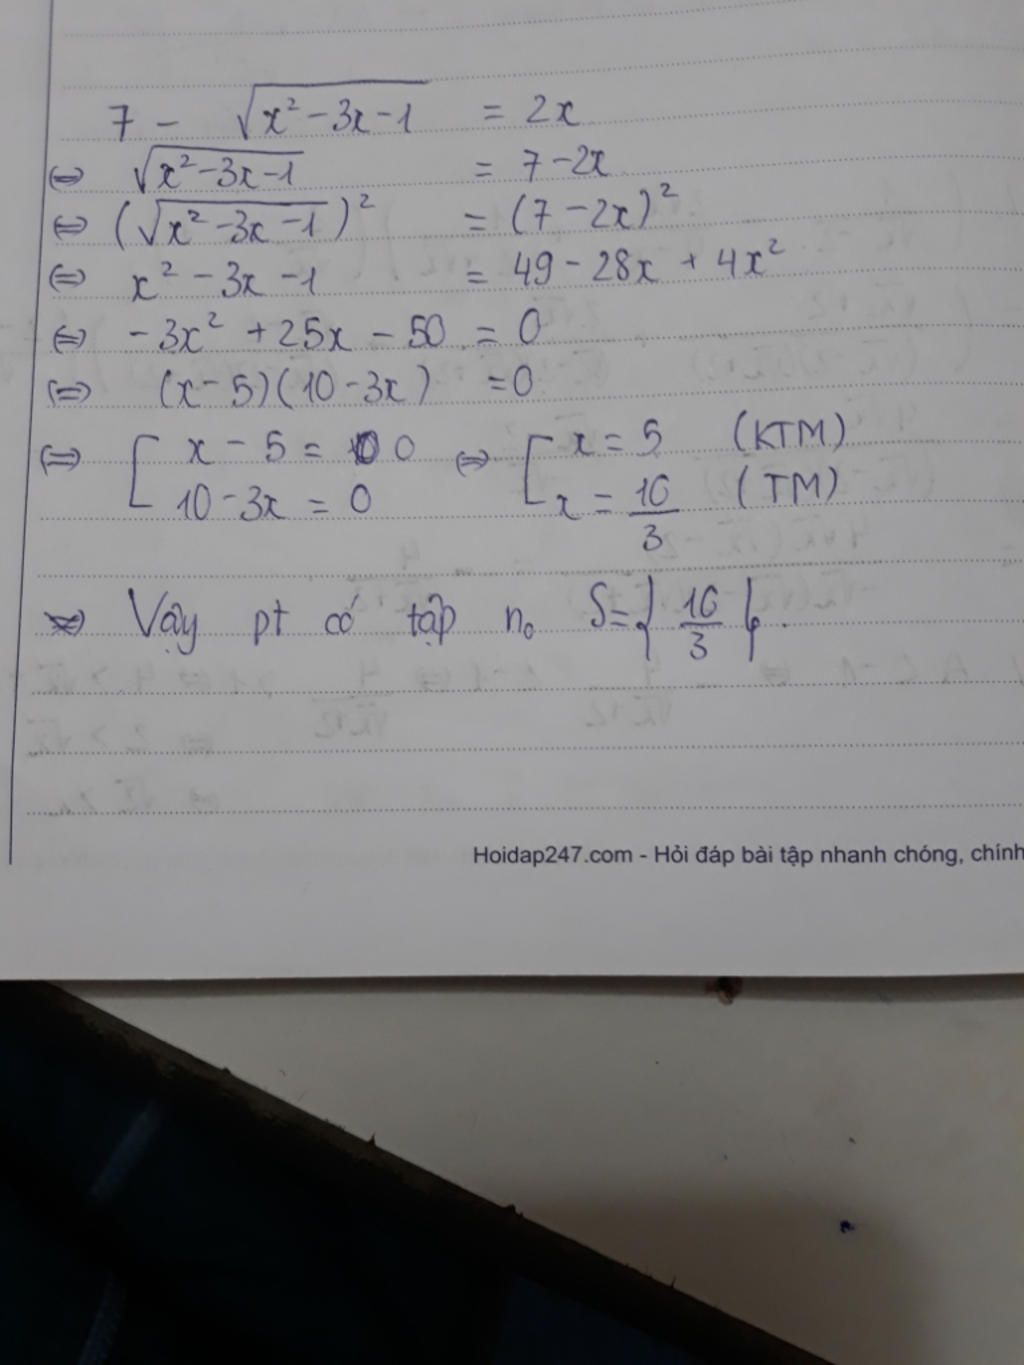 7 - √(x² - 3x - 1) = 2x
⇔ √(x² - 3x - 1) = 7 - 2x
⇔ (√(x² - 3x - 1))² = (7 - 2x)²
⇔ x² - 3x - 1 = 49 - 28x + 4x²
⇔ -3x² + 25x - 50 = 0
⇔ (x - 5)(10 - 3x) = 0
⇔ [ x - 5 = 0 ⇔ [ x = 5 (KTM)
10 - 3x = 0 x = 10/3 (TM)
Vậy pt có tập n₀ S = { 10/3 }.
Hoidap247.com - Hỏi đáp bài tập nhanh chóng, chính